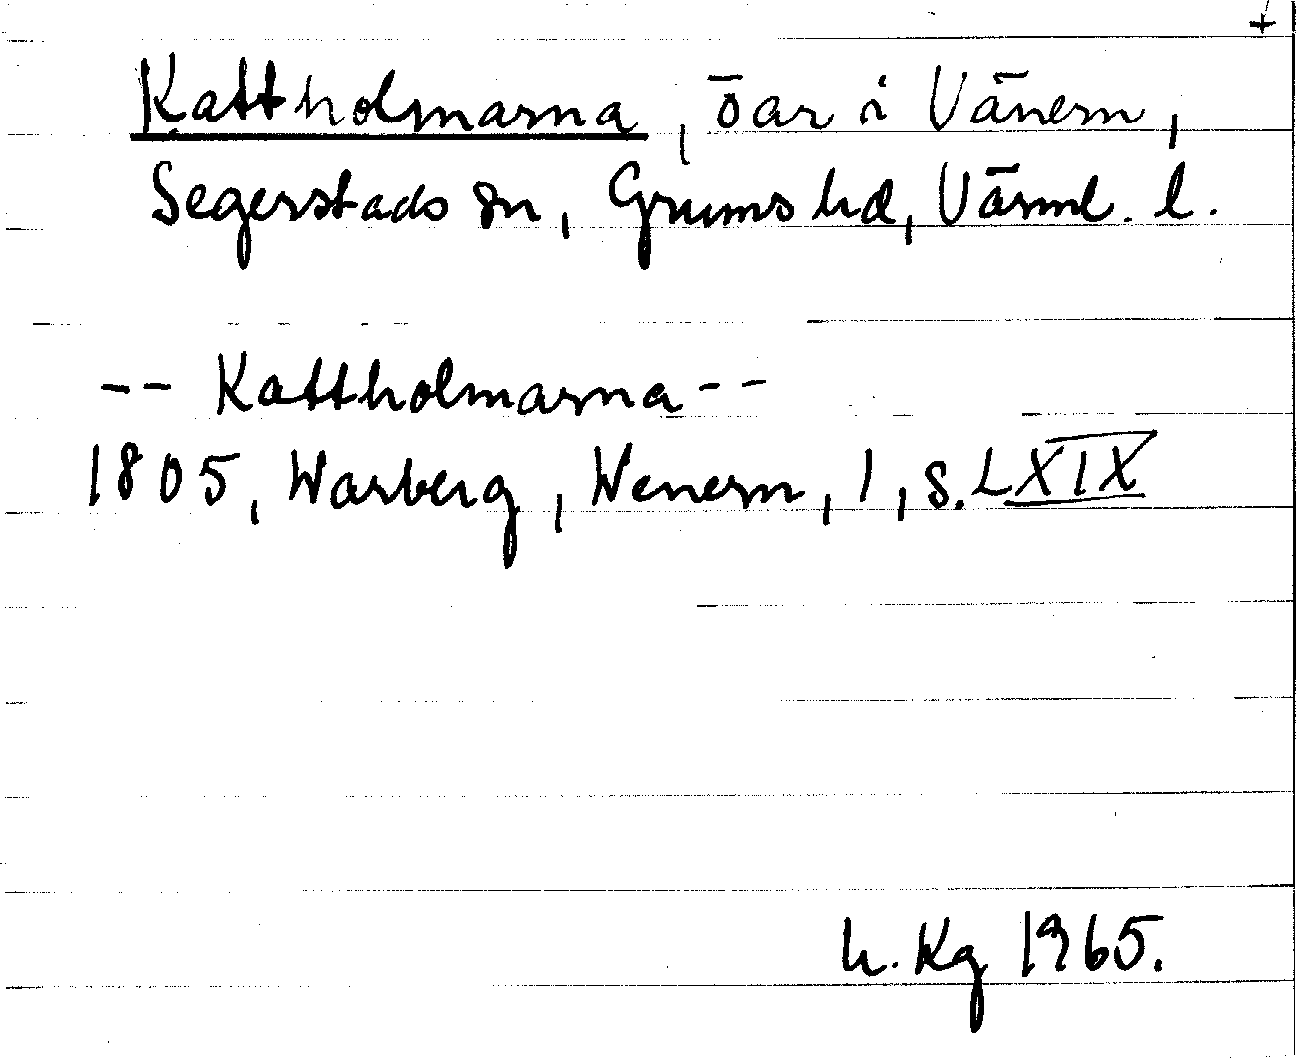 +
Kattholmarna, öar i Vänern,
Segerstads sn, Grums hd, Värml. l.
-- Kattholmarna --
1805, Warberg, Wenern, 1, s. LXIX
h. Kg 1965.